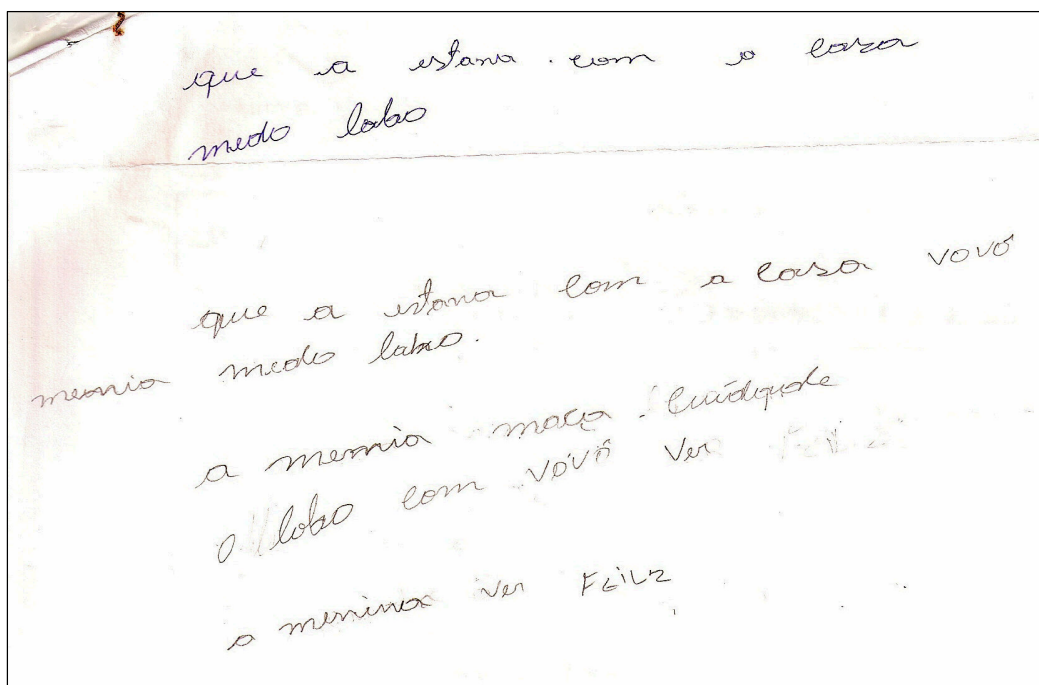 que a estana com o casa
medo lobo
que a estana com a casa vovó
mennia medo lobo.
a mennia maça
o lobo com vovó ver
a menina ver FEiLZ